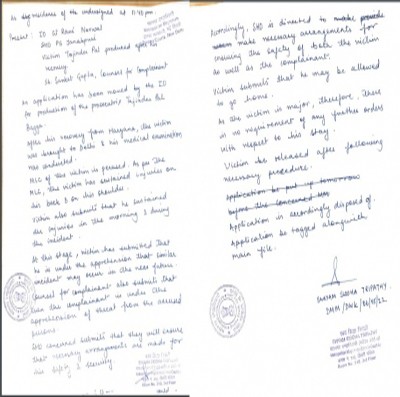 At residence of the undersigned at 11:45 pm.
Present: IO SI Rani Narwal
SHO PS Janakpuri
Victim Tajinder Pal produced after his
recovery
Sh. Sanket Gupta, Counsel for Complainant
An application has been moved by the IO
for production of the prosecutrix Tajinder Pal
Bagga.
After his recovery from Haryana, the victim
was brought to Delhi & his medical examination
was conducted.
MLC of the victim is perused. As per the
MLC, the victim has sustained injuries on
his back & on his shoulder.
Victim also submits that he sustained
injuries in the morning & during
the incident.
At this stage, victim has submitted that
he is under the apprehension that similar
incident may occur in the near future.
Counsel for complainant also submits that
even the complainant is under
apprehension of threat from the accused
persons
SHO concerned submits that they will ensure
that necessary arrangements are made for
his safety & security.
Accordingly, SHO is directed to make
necessary arrangements for
ensuring the safety of both the victim
as well as the complainant.
Victim submits that he may be allowed
to go home.
As the victim is major, therefore, there
is no requirement of any further orders
with respect to his stay.
Victim be released after following
necessary procedure.
Application be put up tomorrow
before the concerned
Application is accordingly disposed of.
Application be tagged alongwith
main file.